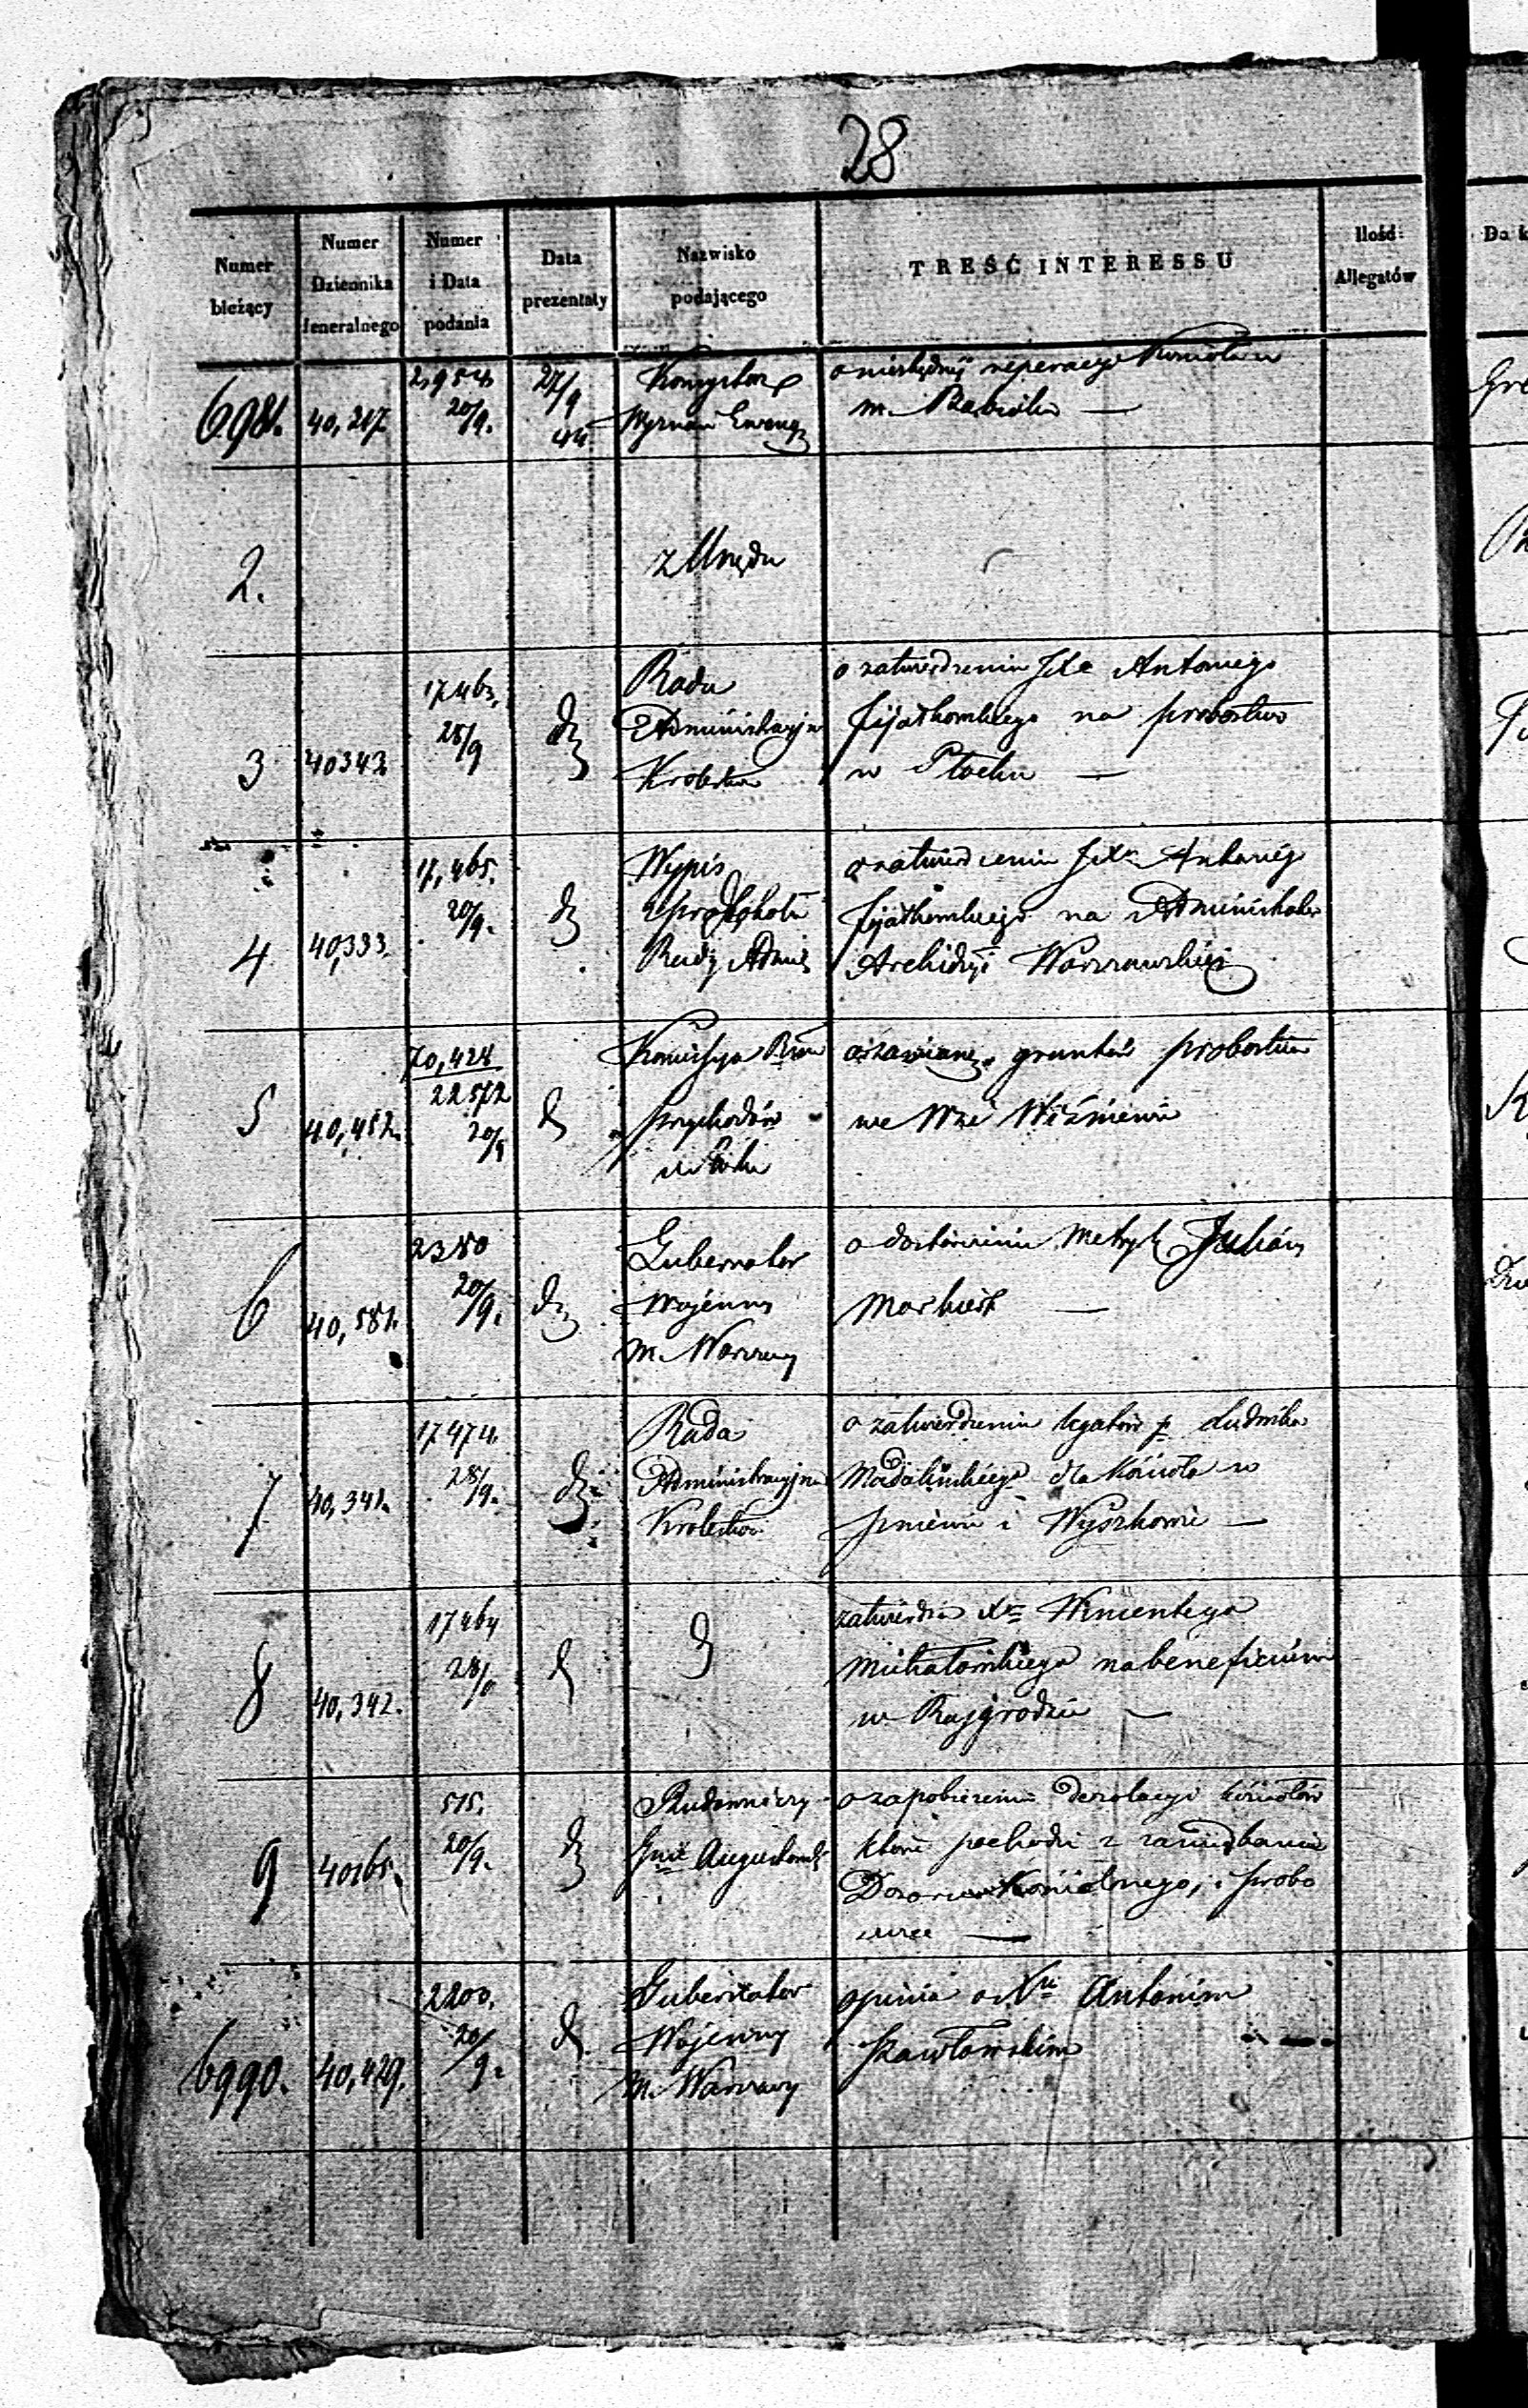 28
Numer bieżący
Numer Dziennika Jeneralnego
Numer i Data podania
Data prezentaty
Nazwisko podającego
TREŚĆ INTERESSU
Ilość Allegatów
6981. 40,217 20/9. 27/9 44
Wyznań Ewang
o niezbędnéj reperacyi Kościoła w
m.
2.
z Urzędu
3 40343 17463. 28/9 d
Rada
Administracyjna
Królestwa
o zatwierdzeniu JXa Antoniego
Fijałkowskiego na probostwo
w Płocku —
4 40,333. 17,465. 20/9. d
Wypis
z protokołu
Rady Admin
o zatwierdzeniu JXa Antoniego
Fijałkowskiego na Administratora
Archidyi Warszawskiej
5 40,452. 70,428 22572 20/9 d
Kommissya Rząd
Przychodów
i Skarbu
gruntów probostwa
we Wsi Wiśniewie
6 40,581. 2380 20/9. d
Gubernator
Wojenny
m. Warszawy
o dostawieniu Metryk Julian
7 40,341. 17474. 28/9. d
Rada
Administracyjna
Królestwa
o zatwierdzeniu legatów p. Ludwika
Madalińskiego dla Kościoła w
i Wyszkowie —
8 40,342. 17464 28/9 d
d
zatwierdza Xa Wincentego
Michałowskiego na beneficium
w Rajgrodzie —
9 40165. 515. 20/9. d
Budowniczy
Gnii Augustowsk
o zapobieżeniu dezolacyi kościołów
które pochodzi z zaniedbania
Dozorów Kościelnego, i probo
szcza —
6990. 40,429. 2200. 20/9. d
Gubernator
Wojenny
m. Warszawy
opinia o Xu Antonim
Szawłowskim